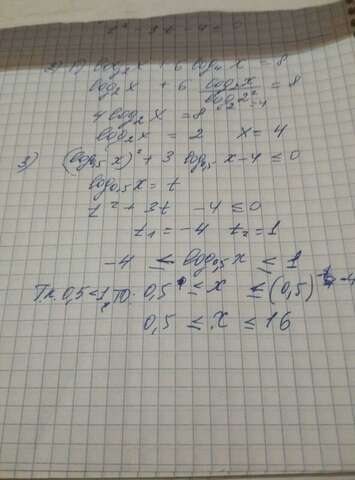 2) 1) log₂x + 6 log₄x = 8
log₂x + 6 log₂x / log₂2² = 8
4 log₂x = 8
log₂x = 2 x = 4
3) (log₀,₅ x)² + 3 log₀,₅ x - 4 ≤ 0
log₀,₅x = t
t² + 3t - 4 ≤ 0
t₁ = -4 t₂ = 1
-4 ≤ log₀,₅x ≤ 1
Т.к. 0,5 < 1, то: 0,5¹ ≤ x ≤ (0,5)⁻⁴
0,5 ≤ x ≤ 16